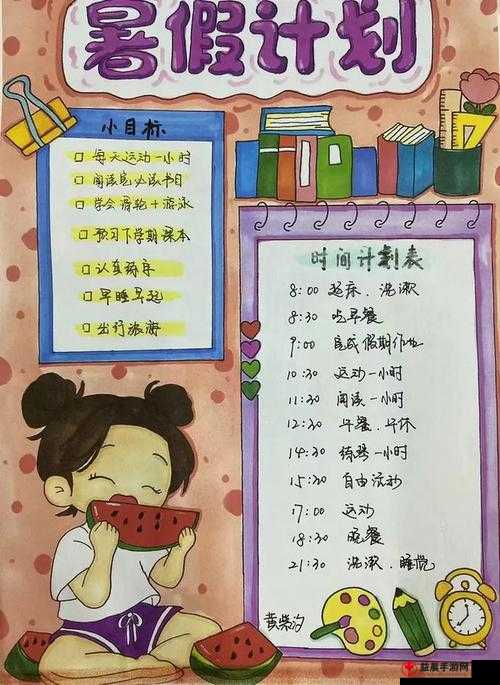 暑假计划
小目标
□ 每天运动一小时
□ 阅读完必读书目
□ 学会滑轮+游泳
□ 预习下学期课本
□ 认真练琴
□ 早睡早起
□ 出行旅游
时间计划表
8:00 起床、洗漱
8:30 吃早餐
9:00 完成假期作业
10:30 运动一小时
11:30 阅读一小时
12:30 午餐、午休
14:30 练琴一小时
15:30 自由活动
17:00 运动
18:30 晚餐
21:30 洗漱、睡觉
益辰手游网